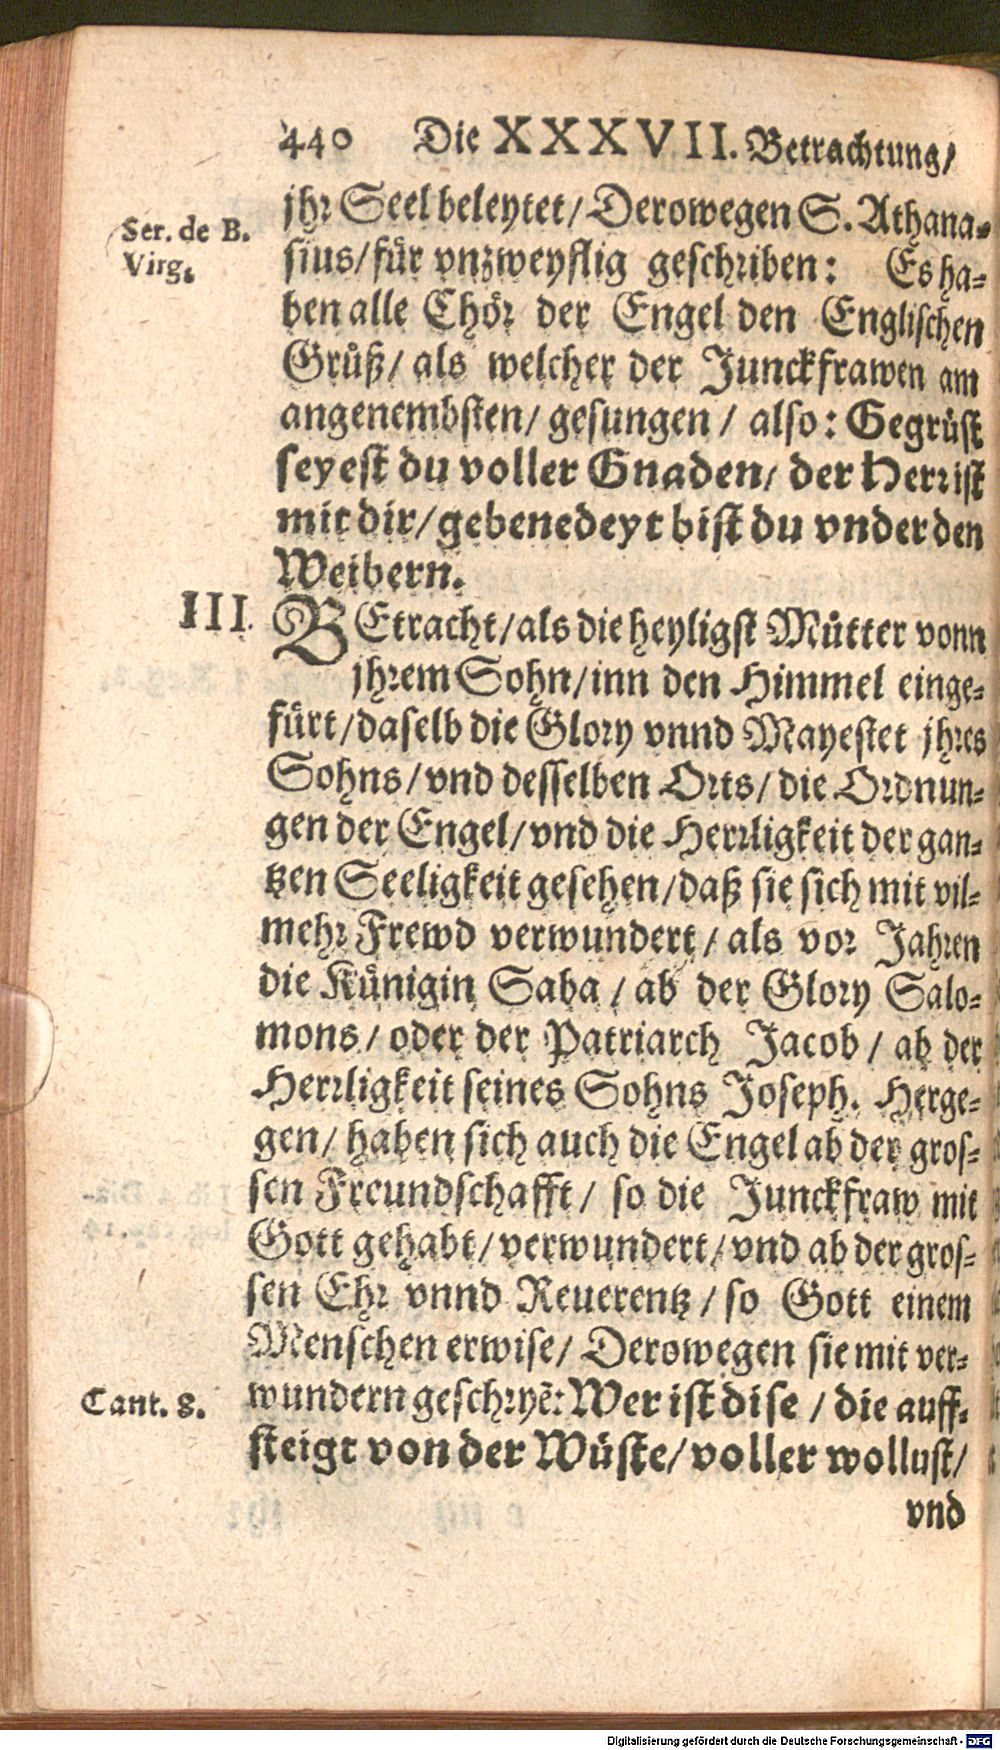 440 Die XXXVII. Betrachtung/
jhr Seel beleytet/ Derowegen S. Athana-
Ser. de B.
Virg.
sius/ für vnzweyflig geschriben: Es ha-
ben alle Chör der Engel den Englischen
Grůß/ als welcher der Junckfrawen am
angenembsten/ gesungen/ also: Gegrüst
seyest du voller Gnaden/ der Herr ist
mit dir/ gebenedeyt bist du vnder den
Weibern.
III. BEtracht/ als die heyligst Můtter vonn
jhrem Sohn/ inn den Himmel einge-
fürt/ daselb die Glory vnnd Mayestet jhres
Sohns/ vnd desselben Orts/ die Ordnun-
gen der Engel/ vnd die Herrligkeit der gan-
tzen Seeligkeit gesehen/ daß sie sich mit vil-
mehr Frewd verwundert/ als vor Jahren
die Künigin Saba/ ab der Glory Salo-
mons/ oder der Patriarch Jacob/ ab der
Herrligkeit seines Sohns Joseph. Herge-
gen/ haben sich auch die Engel ab der gros-
sen Freundschafft/ so die Junckfraw mit
Gott gehabt/ verwundert/ vnd ab der gros-
sen Ehr vnnd Reuerentz/ so Gott einem
Menschen erwise/ Derowegen sie mit ver-
Cant. 8. wundern geschryẽ: Wer ist dise/ die auff-
steigt von der Wüste/ voller wollust/
vnd
Digitalisierung gefördert durch die Deutsche Forschungsgemeinschaft - DFG